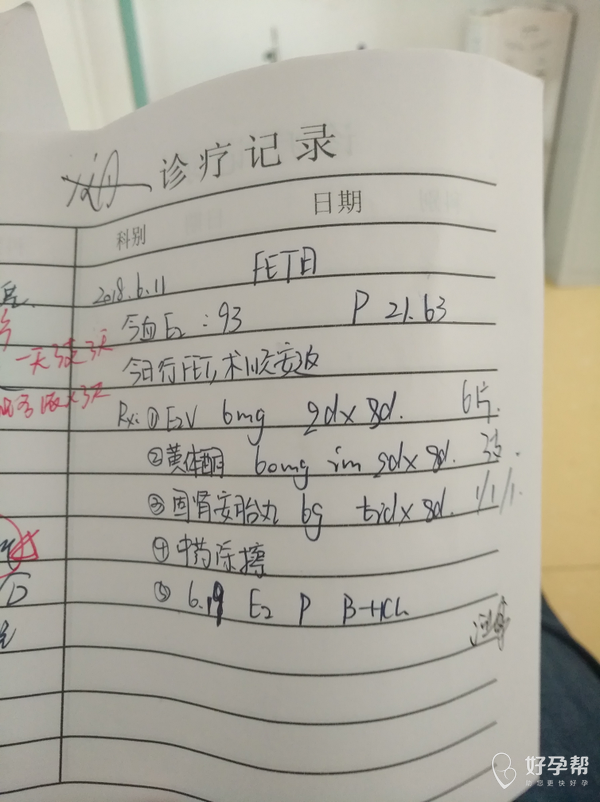 诊疗记录
科别 日期
2018.6.11 FET日
今血E2:93 P 21.63
今日行FET,术顺安返
Rx:①E2V 6mg qd×8d. 6片.
②黄体酮 60mg im qd×8d. 3支.
③固肾安胎丸 6g tid×8d. 1/1/1.
④中药涂擦
⑤6.19 E2 P B-HCG
一天3次3天
好孕帮
助您更快好孕